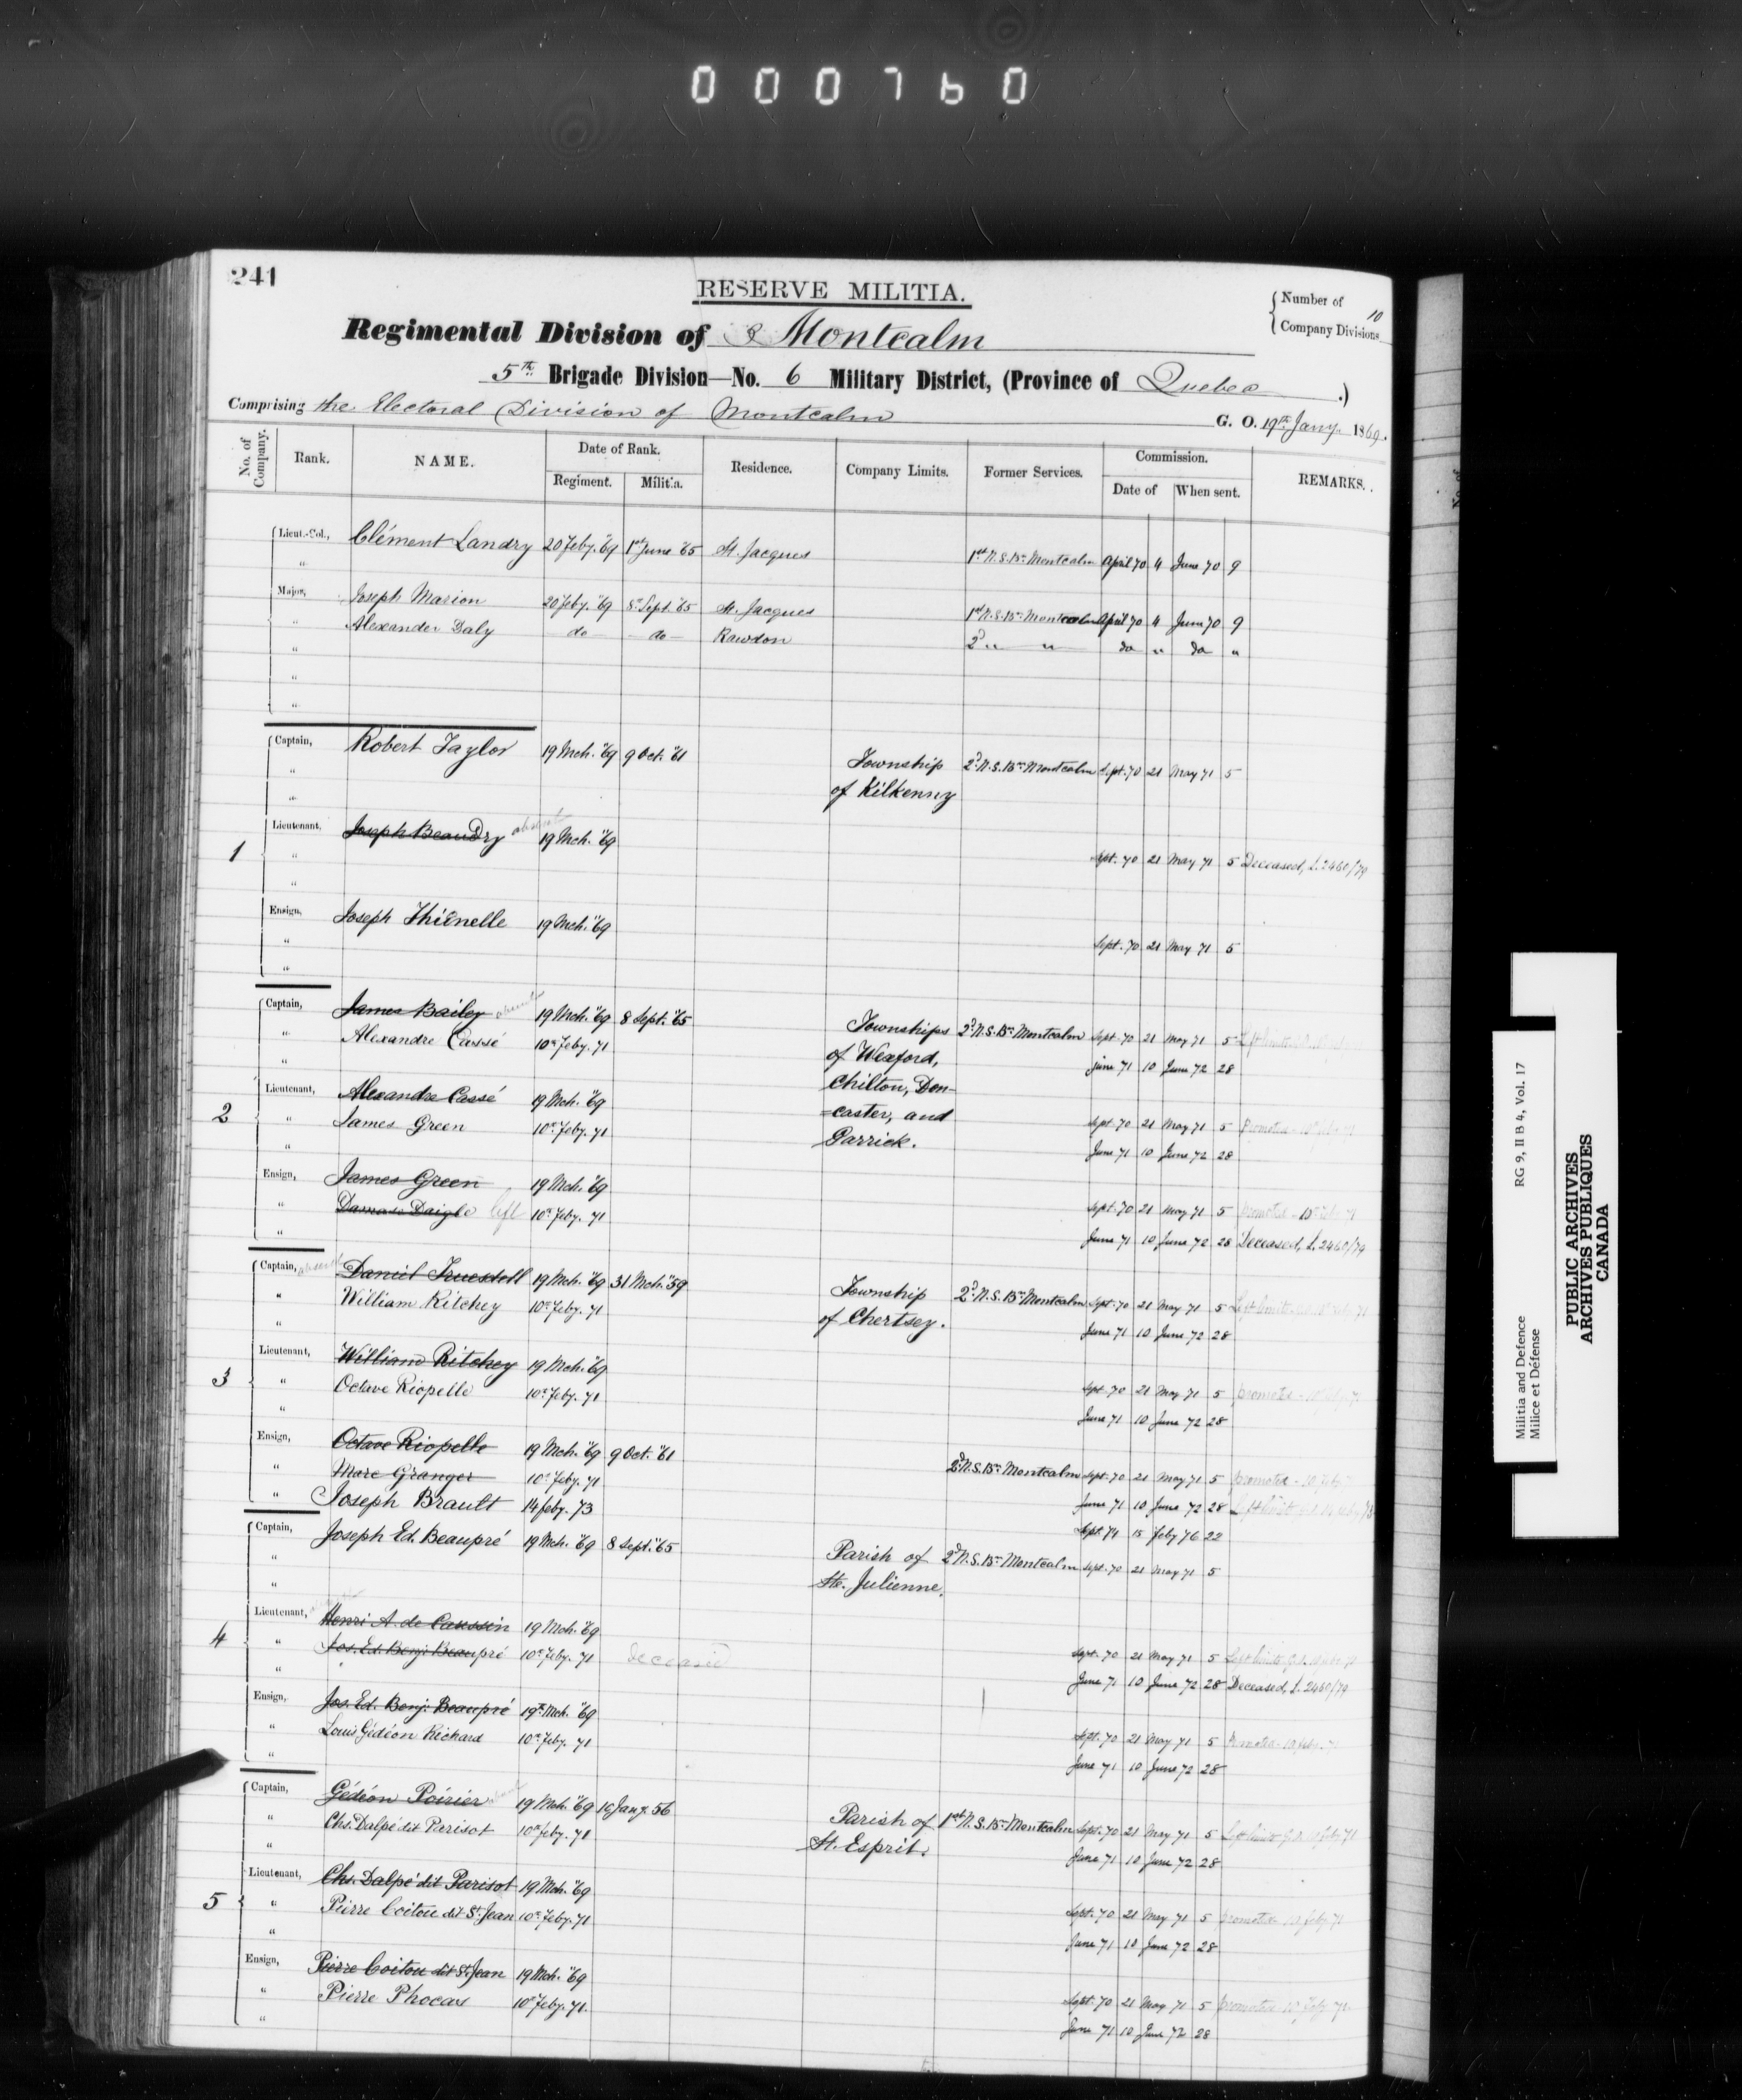 000760
241
RESERVE MILITIA.
{ Number of Company Divisions 10
Regimental Division of Montcalm
5th Brigade Division—No. 6 Military District, (Province of Quebec .)
Comprising the Electoral Division of Montcalm G. O. 19th Jany. 1869.
No. of Company. Rank. NAME. Date of Rank. Residence. Company Limits. Former Services. Commission. REMARKS.
Regiment. Militia. Date of When sent.
Lieut.-Col., Clément Landry 20 Feby. "69 1st June "65 St. Jacques 1st N.S. Bn. Montcalm April 70 4 June 70 9
"
Major, Joseph Marion 20 Feby. "69 8th Sept. "65 St. Jacques 1st N.S. Bn. Montcalm April 70 4 June 70 9
" Alexander Daly do do Rawdon 2d " " do " do "
"
"
"
1
Captain, Robert Taylor 19 Mch. "69 9 Oct. "61 Township 2d N.S. Bn. Montcalm Sept. 70 21 May 71 5
" of Kilkenny
"
Lieutenant, Joseph Beaudry absent 19 Mch. "69
" Sept. 70 21 May 71 5 Deceased, L. 2460/79
"
Ensign, Joseph Thiénelle 19 Mch. "69
" Sept. 70 21 May 71 5
"
2
Captain, James Bailey absent 19 Mch. "69 8 Sept. "65 Townships 2d N.S. Bn. Montcalm Sept. 70 21 May 71 5 Left limits
" Alexandre Cassé 10th Feby. 71 of Wexford, June 71 10 June 72 28
" Chilton, Don-
Lieutenant, Alexandre Cassé 19 Mch. "69 =caster, and
" James Green 10th Feby. 71 Sept. 70 21 May 71 5 Promoted
" Parrick. June 71 10 June 72 28
Ensign, James Green 19 Mch. "69
" Damase Daigle left 10th Feby. 71 Sept. 70 21 May 71 5 promoted
" June 71 10 June 72 28 Deceased, L. 2460/79
3
Captain, absent Daniel Truesdell 19 Mch. "69 31 Mch. "59 Township 2d N.S. Bn. Montcalm Sept. 70 21 May 71 5 Left limits
" William Ritchey 10th Feby. 71 of Chertsey. June 71 10 June 72 28
"
Lieutenant, William Ritchey 19 Mch. "69
" Octave Riopelle 10th Feby. 71 Sept. 70 21 May 71 5 promoted
" June 71 10 June 72 28
Ensign, Octave Riopelle 19 Mch. "69 9 Oct. "61
" Marc Granger 10th Feby. 71 2d N.S. Bn. Montcalm Sept. 70 21 May 71 5 promoted - 10 Feby
" Joseph Brault 14 Feby. 73 June 71 10 June 72 28 Left limits
Sept. 74 15 Feby 76 22
4
Captain, Joseph Ed. Beaupré 19 Mch. "69 8 Sept. "65 Parish of 2d N.S. Bn. Montcalm Sept. 70 21 May 71 5
" Ste. Julienne.
"
Lieutenant, Henri A. de Caussin 19 Mch. "69
" Jos. Ed. Benj. Beaupré 10th Feby. 71 deceased Sept. 70 21 May 71 5 Left limits
" June 71 10 June 72 28 Deceased, L. 2460/79
Ensign, Jos. Ed. Benj. Beaupré 19th Mch. "69
" Louis Gédéon Richard 10th Feby. 71 Sept. 70 21 May 71 5 Promoted - 10 Feby.
" June 71 10 June 72 28
5
Captain, Gédéon Poirier 19 Mch. "69 10 Jany. 56 Parish of 1st N.S. Bn. Montcalm Sept. 70 21 May 71 5 Left limits
" Chs. Dalpé dit Parisot 10th Feby. 71 St. Esprit. June 71 10 June 72 28
"
Lieutenant, Chs. Dalpé dit Parisot 19 Mch. "69
" Pierre Coitou dit St. Jean 10th Feby. 71 Sept. 70 21 May 71 5 promoted 10 Feby. 71
" June 71 10 June 72 28
Ensign, Pierre Coitou dit St. Jean 19 Mch. "69
" Pierre Phocas 10th Feby. 71. Sept. 70 21 May 71 5 promoted 10 Feby. 71
" June 71 10 June 72 28
Militia and Defence RG 9, II B 4, Vol. 17
Milice et Défense
PUBLIC ARCHIVES
ARCHIVES PUBLIQUES
CANADA